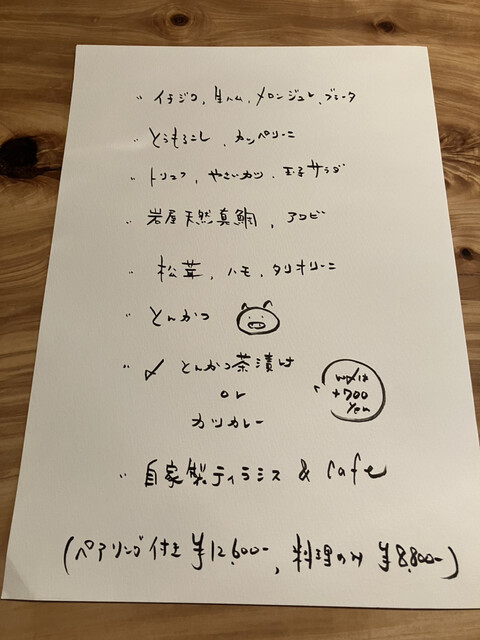 〃 イチジク、生ハム、メロンジュレ、ブラータ
〃 とうもろこし、カッペリーニ
〃 トリュフ、やさいカツ、玉子サラダ
〃 岩屋天然真鯛、アワビ
〃 松茸、ハモ、タリオリーニ
〃 とんかつ
〃 〆 とんかつ茶漬け
or
カツカレー
+700
yen
〃 自家製ティラミス & Cafe
(ペアリング付き ¥12,600-、料理のみ ¥8,800-)